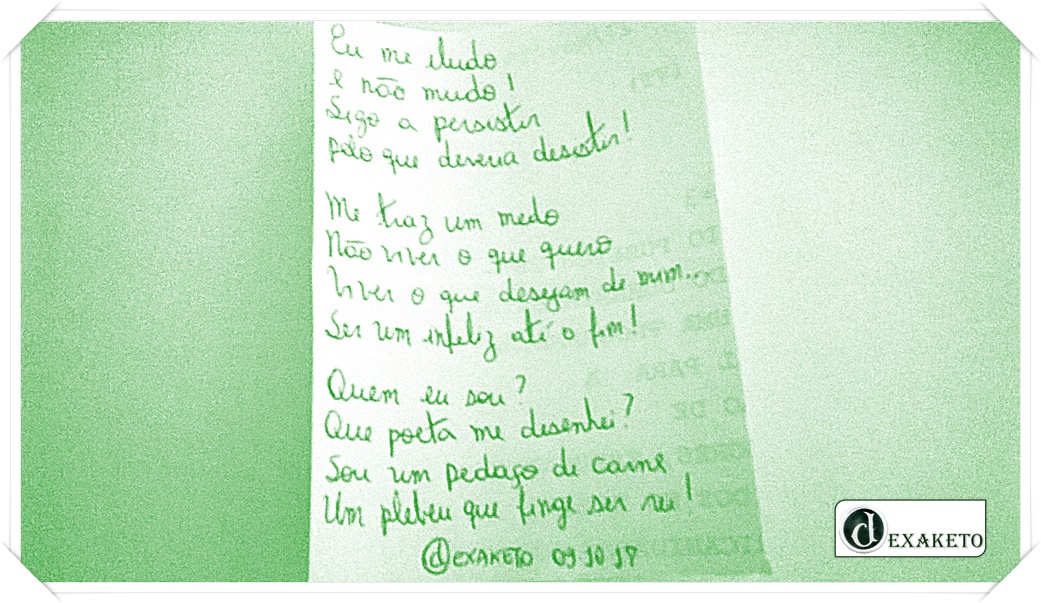 Eu me iludo
e não mudo!
Sigo a persistir
pelo que deveria desistir!
Me traz um medo
Não viver o que quero
Viver o que desejam de mim...
Ser um infeliz até o fim!
Quem eu sou?
Que poeta me desenhei?
Sou um pedaço de carne
Um plebeu que finge ser rei!
@DEXAKETO 09 10 17
DEXAKETO